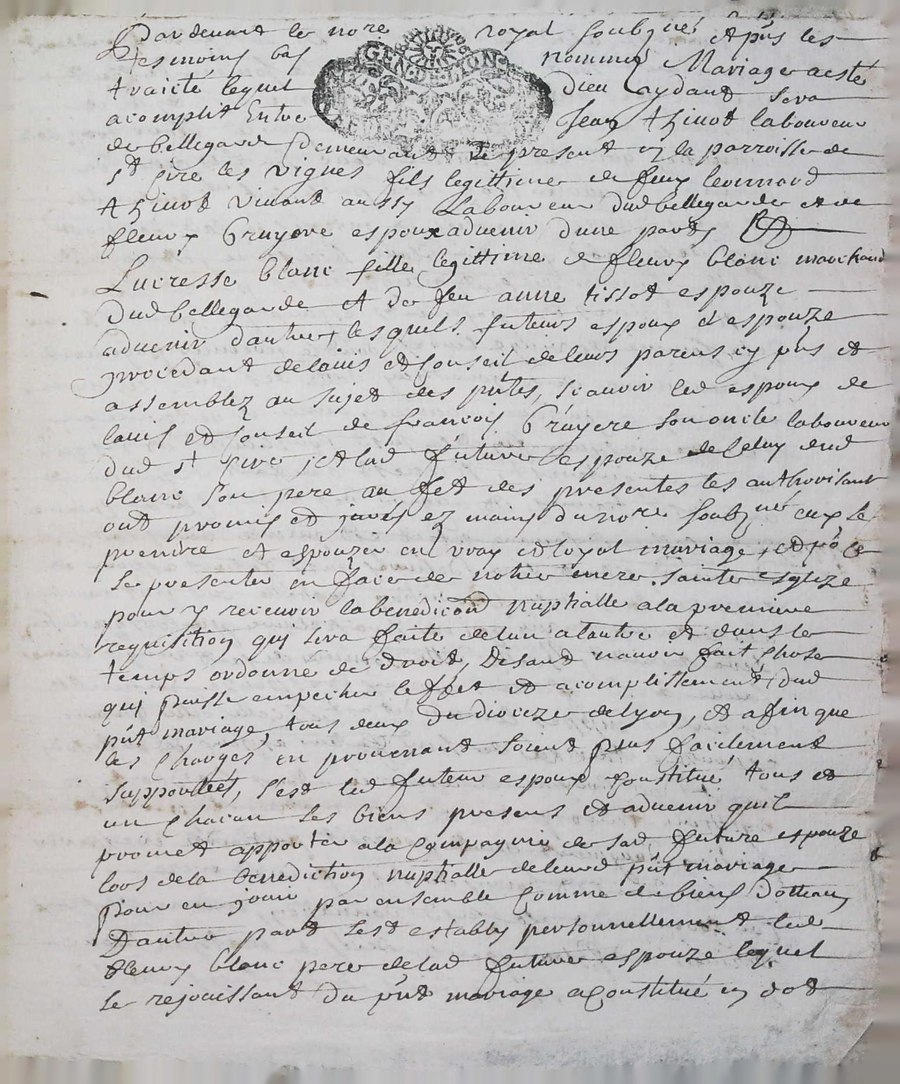 Pardevant le no.re royal soubz.né et apres les
tesmoins bas nommes Mariage a esté
traicté lequel Dieu aydant sera
acomplit Entre Jean thinot laboureur
de bellegarde demeurant de present en la parroisse de
st sire les vignes fils legittime de feux leonnard
thinot vivant aussy Laboureur dud bellegarde et de
fleury Gruyere espoux advenir d'une part
Lucresse blanc fille legittime de fleury blanc marchand
dud bellegarde et de feu anne tissot espouze
advenir dautre, lesquels futeurs espoux et espouze
procedant de lavis et Conseil de leurs parens icy pns et
assemblez au sujet des pntes, scavoir led espoux de
lavis et Conseil de francois Gruyere son oncle laboureur
dud st sire, et lad future espouze de Celuy dud
blanc son pere au fet des presentes les authorisant
ont promis et jurés ez mains du no.re soubz.né eux le
prendre et espouzer en vray et loyal mariage, et
Se presenter en face de nostre mere Sainte esglize
pour y recevoir la benedicõn nuphalle a la premiere
requisition qui sera faite de lun a lautre et dans le
temps ordonné de droit, disant navoir fait Chose
qui puisse empecher le fet et acomplissement dud
pnt mariage, tous deux du dioceze de lyon, et afin que
les Charges en provenant soient plus facilement
Supportées, sest led futeur espoux Constitué tous et
un chacun Ses biens presens et advenir quil
promet apporter a la Compagnie de sad future espouze
lors de la benediction nuphalle de leurd pnt mariage
Pour en jouir par ensemble Comme de biens dotteaux
Dautre part Sest estably personnellement led
fleury blanc pere de lad future espouze lequel
Se rejouissant du pnt mariage a Constitué en dot
GEN·DE·LION